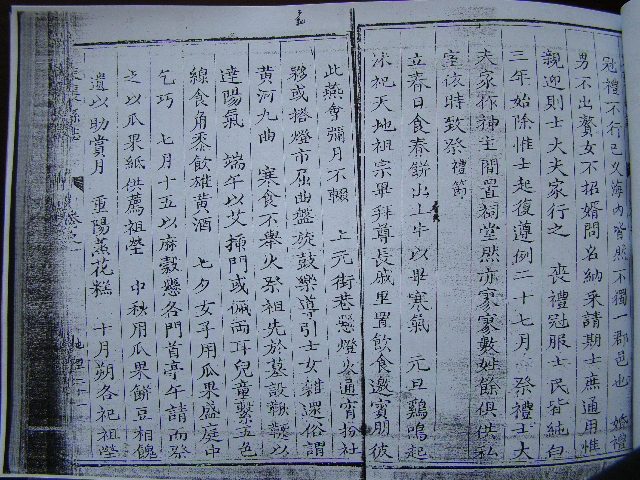 冠禮不行已久海內皆然不獨一郡邑也 婚禮
男不出贅女不招婿問名納采請期士庶通用惟
親迎則士大夫家行之 喪禮冠服士民皆純白
三年始除惟士起復遵例二十七月 祭禮士大
夫家祢神主間置祠堂然亦寥寥數姓餘俱供私
室依時致祭禮簡
立春日食春餅出土牛以畢寒氣 元旦鷄鳴起
沐祀天地祖宗畢拜尊長戚里置飲食邀賓朋彼
此燕會彌月不輟 上元街巷懸燈火通宵扮社
夥或搭燈市屈曲盤旋鼓樂導引士女雜遝俗謂
黄河九曲 寒食不舉火祭祖先於墓設鞦韆以
達陽氣 端午以艾揷門或佩両耳兒童繫五色
線食角黍飲雄黄酒 七夕女子用瓜果盛庭中
乞巧 七月十五以麻穀懸各門首亭午請而祭
之以瓜果紙供薦祖塋 中秋用瓜果餅豆相餽
遺以助賞月 重陽蒸花糕 十月朔各祀祖塋